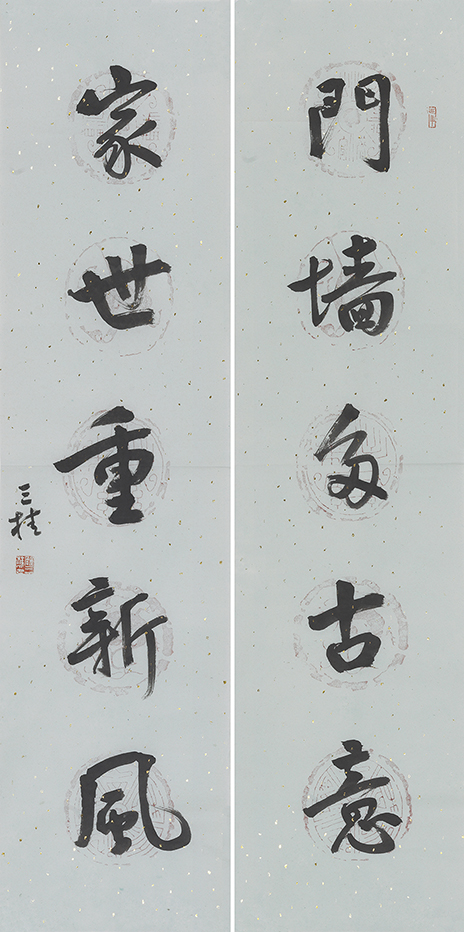 門墙多古意
家世重新風
三桂